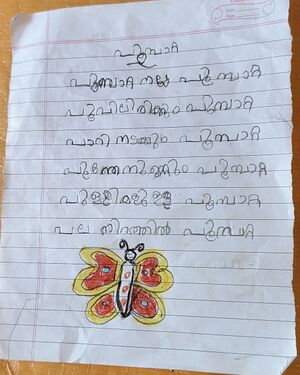 പൂമ്പാറ്റ
പൂമ്പാറ്റ നല്ല പൂമ്പാറ്റ
പൂവിലിരിക്കും പൂമ്പാറ്റ
പാറി നടക്കും പൂമ്പാറ്റ
പൂന്തേനുണ്ണും പൂമ്പാറ്റ
പുള്ളികളുള്ള പൂമ്പാറ്റ
പല നിറത്തിൽ പൂമ്പാറ്റ